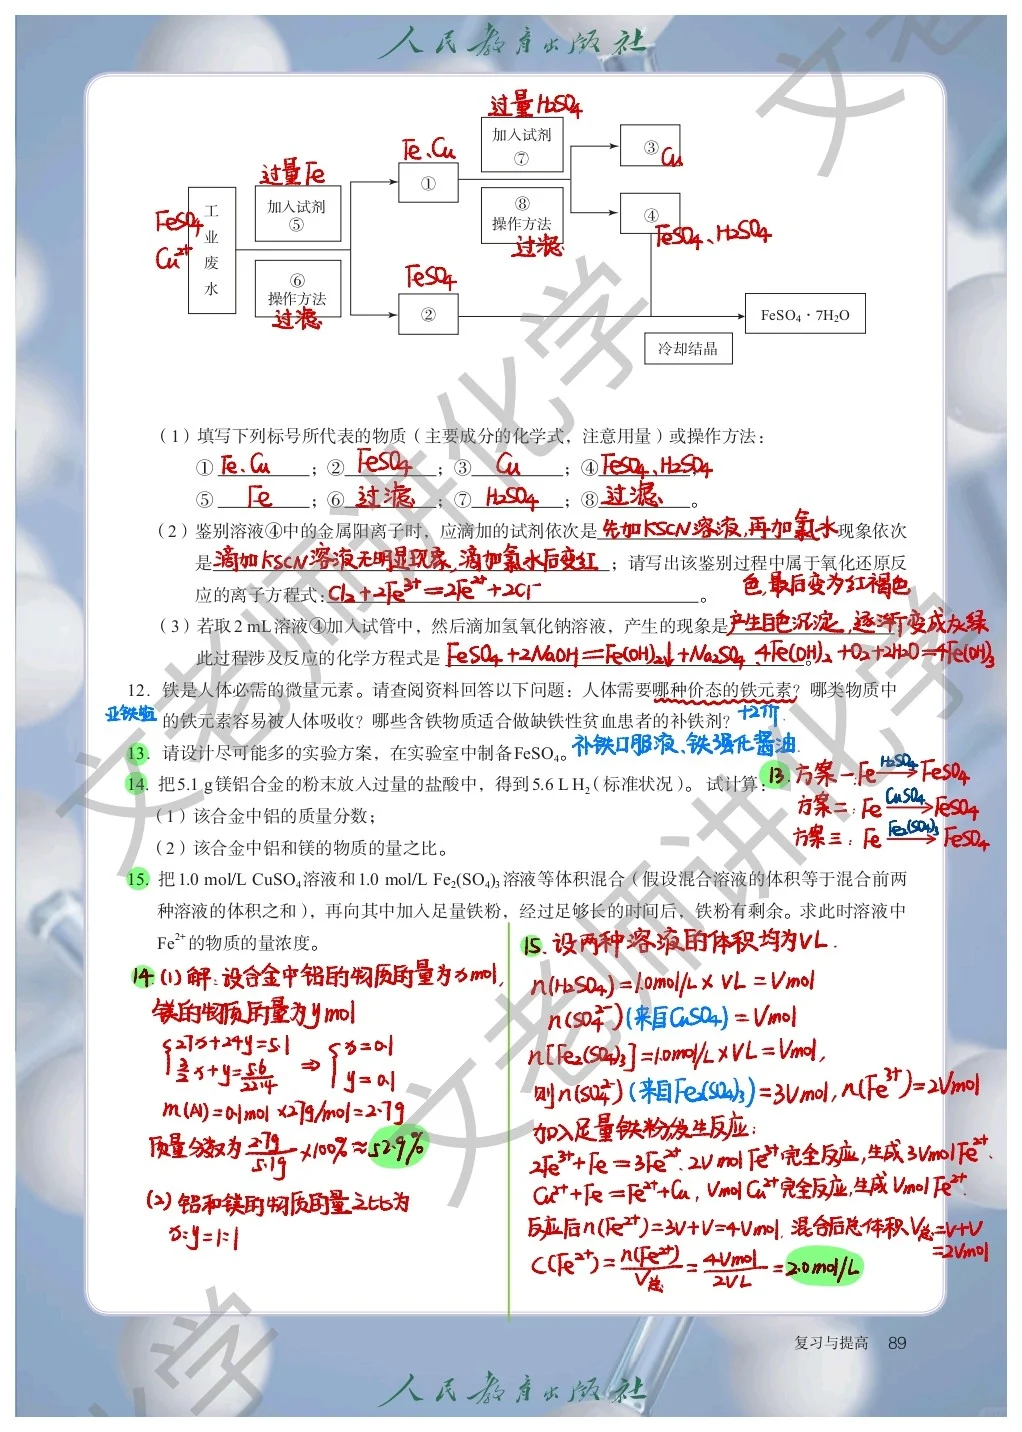 人民教育出版社
过量H2SO4
加入试剂
⑦
Fe、Cu
①
③
Cu
过量Fe
加入试剂
⑤
⑧
操作方法
过滤
④
FeSO4、H2SO4
FeSO4
Cu²⁺
工业废水
⑥
操作方法
过滤
FeSO4
②
FeSO₄·7H₂O
冷却结晶
(1) 填写下列标号所代表的物质(主要成分的化学式,注意用量)或操作方法:
① Fe、Cu ;② FeSO4 ;③ Cu ;④ FeSO4、H2SO4
⑤ Fe ;⑥ 过滤 ;⑦ H2SO4 ;⑧ 过滤 。
(2) 鉴别溶液④中的金属阳离子时,应滴加的试剂依次是 先加KSCN溶液,再加氯水 现象依次
是 滴加KSCN溶液无明显现象,滴加氯水后变红 ;请写出该鉴别过程中属于氧化还原反
色,最后变为红褐色
应的离子方程式: Cl2+2Fe³⁺=2Fe²⁺+2Cl⁻ 。
(3) 若取2 mL溶液④加入试管中,然后滴加氢氧化钠溶液,产生的现象是 产生白色沉淀,逐渐变成灰绿
此过程涉及反应的化学方程式是 FeSO4+2NaOH=Fe(OH)2↓+Na2SO4、4Fe(OH)2+O2+2H2O=4Fe(OH)3 。
12. 铁是人体必需的微量元素。请查阅资料回答以下问题:人体需要哪种价态的铁元素?哪类物质中
亚铁盐
的铁元素容易被人体吸收?哪些含铁物质适合做缺铁性贫血患者的补铁剂?
+2价
13. 请设计尽可能多的实验方案,在实验室中制备FeSO₄。
补铁口服液、铁强化酱油
14. 把5.1 g镁铝合金的粉末放入过量的盐酸中,得到5.6 L H₂(标准状况)。试计算:
(1) 该合金中铝的质量分数;
(2) 该合金中铝和镁的物质的量之比。
13.方案一:Fe H2SO4→ FeSO4
方案二:Fe CuSO4→ FeSO4
方案三:Fe Fe2(SO4)3→ FeSO4
15. 把1.0 mol/L CuSO₄溶液和1.0 mol/L Fe₂(SO₄)₃溶液等体积混合(假设混合溶液的体积等于混合前两
种溶液的体积之和),再向其中加入足量铁粉,经过足够长的时间后,铁粉有剩余。求此时溶液中
Fe²⁺的物质的量浓度。
14.(1)解:设合金中铝的物质的量为x mol,
镁的物质的量为y mol
{27x+24y=5.1 ⇒ {x=0.1
3/2x+y=5.6/22.4 y=0.1
m(Al)=0.1mol×27g/mol=2.7g
质量分数为 2.7g/5.1g ×100%≈52.9%
(2)铝和镁的物质的量之比为
x:y=1:1
15.设两种溶液的体积均为VL.
n(H2SO4)=1.0mol/L×VL=Vmol
n(SO4²⁻)(来自CuSO4)=Vmol
n[Fe2(SO4)3]=1.0mol/L×VL=Vmol,
则n(SO4²⁻)(来自Fe2(SO4)3)=3Vmol,n(Fe³⁺)=2Vmol
加入足量铁粉发生反应:
2Fe³⁺+Fe=3Fe²⁺.2VmolFe³⁺完全反应,生成3VmolFe²⁺.
Cu²⁺+Fe=Fe²⁺+Cu,VmolCu²⁺完全反应,生成VmolFe²⁺.
反应后n(Fe²⁺)=3V+V=4Vmol.混合后总体积V总=V+V
=2Vmol
C(Fe²⁺)=n(Fe²⁺)/V总=4Vmol/2VL=2.0mol/L
复习与提高 89
人民教育出版社
文老师讲化学